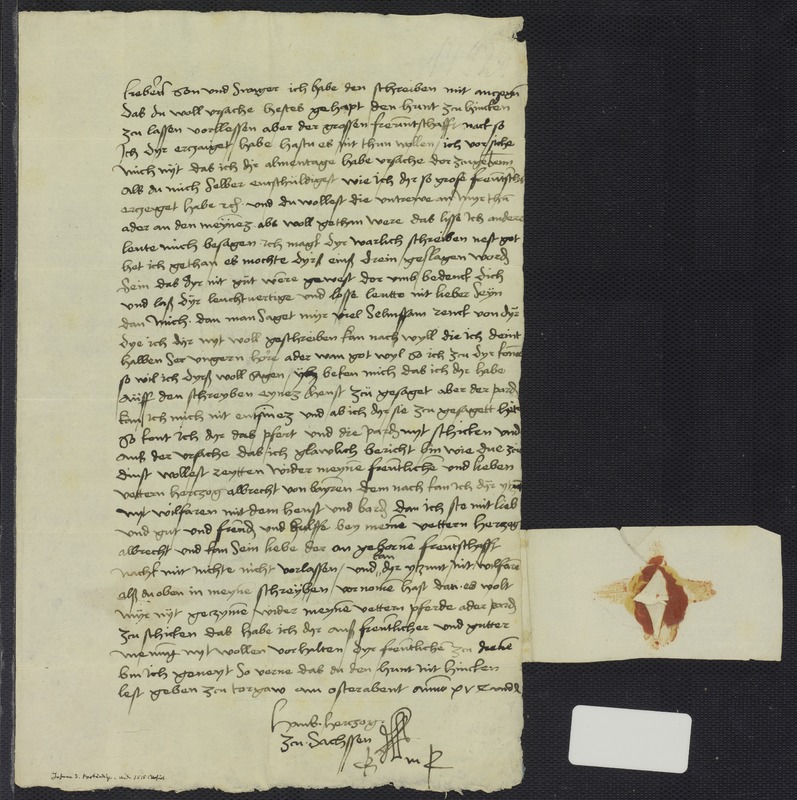 lieber son und swager ich habe den schreiben mit
das du woll ursache hestes gehapt den hunt zcu hincken
zcu lassen vorllessen aber der grossen freuntschafft nach so
Ich dyr erczaiget habe hastu es nit thun wollen ich vorsiche
mich nyt das ich dyr almentage habe ursache dor zcu gebenn
als du mich selber entschuldigest wie ich dyr so grose freuntscha
erczeiget habe und du wollest die untrewe an myr tha
ader an den meynez abs woll gethan were das lisse ich andere
leute mich besagen ich magk dyr warlich schreiben nest got
het ich gethan es mochte dyrs eins drein geslagen word
sein das dyr nit gut were gewest dor umb bedenck dich
und las dyr leuchtvertige und losse leutte nit lieber seyn
dan mich dan man saget myr viel selmssam renck von dyr
dye ich dyr nyt woll geschreiben kan nach wyll die ich deint
halben ser ungern hore ader wan got wyl so ich zcu dyr kome
so wil ich dyrs woll sagen ich beken mich das ich dyr habe
auff den schreyben eynez henst zcu gesaget aber der pard
kan ich mich nit entsinnez und ab ich dyr sie zcu gesagett hete
so kont ich dyr das pfert und die pard nyt schicken und
aus der ursache das ich glawlich bericht bin wie due zcu
dinst wollest reytten wider meyne freuntliche und lieben
vettern herczog albrecht von bayren dem nach kan ich dyr
nyt wilfaren mit dem henst und bard dan ich ste mit lieb
und gut und freund und hulffe bey meine vettern herczog
albrecht und kan sein liebe der an gebornne freuntschafft
nach mit nichte nicht vorlassen und kan dyr yczunt nit wilfare
als du oben in meyne schreyben vornomen hast dan es wolt
myr nyt geczymen wider meyne vettern pferde ader pard
zcu schicken das habe ich dyr aus freuntlicher und gutter
meinung nyt wollen vorhalten dyr freuntlichen zcu dienen
bin ich geneyt so verne das du den hunt nit hincken
lest geben zcu torgaw am osterabent anno
Hans herczog
zcu Sachssen
m p